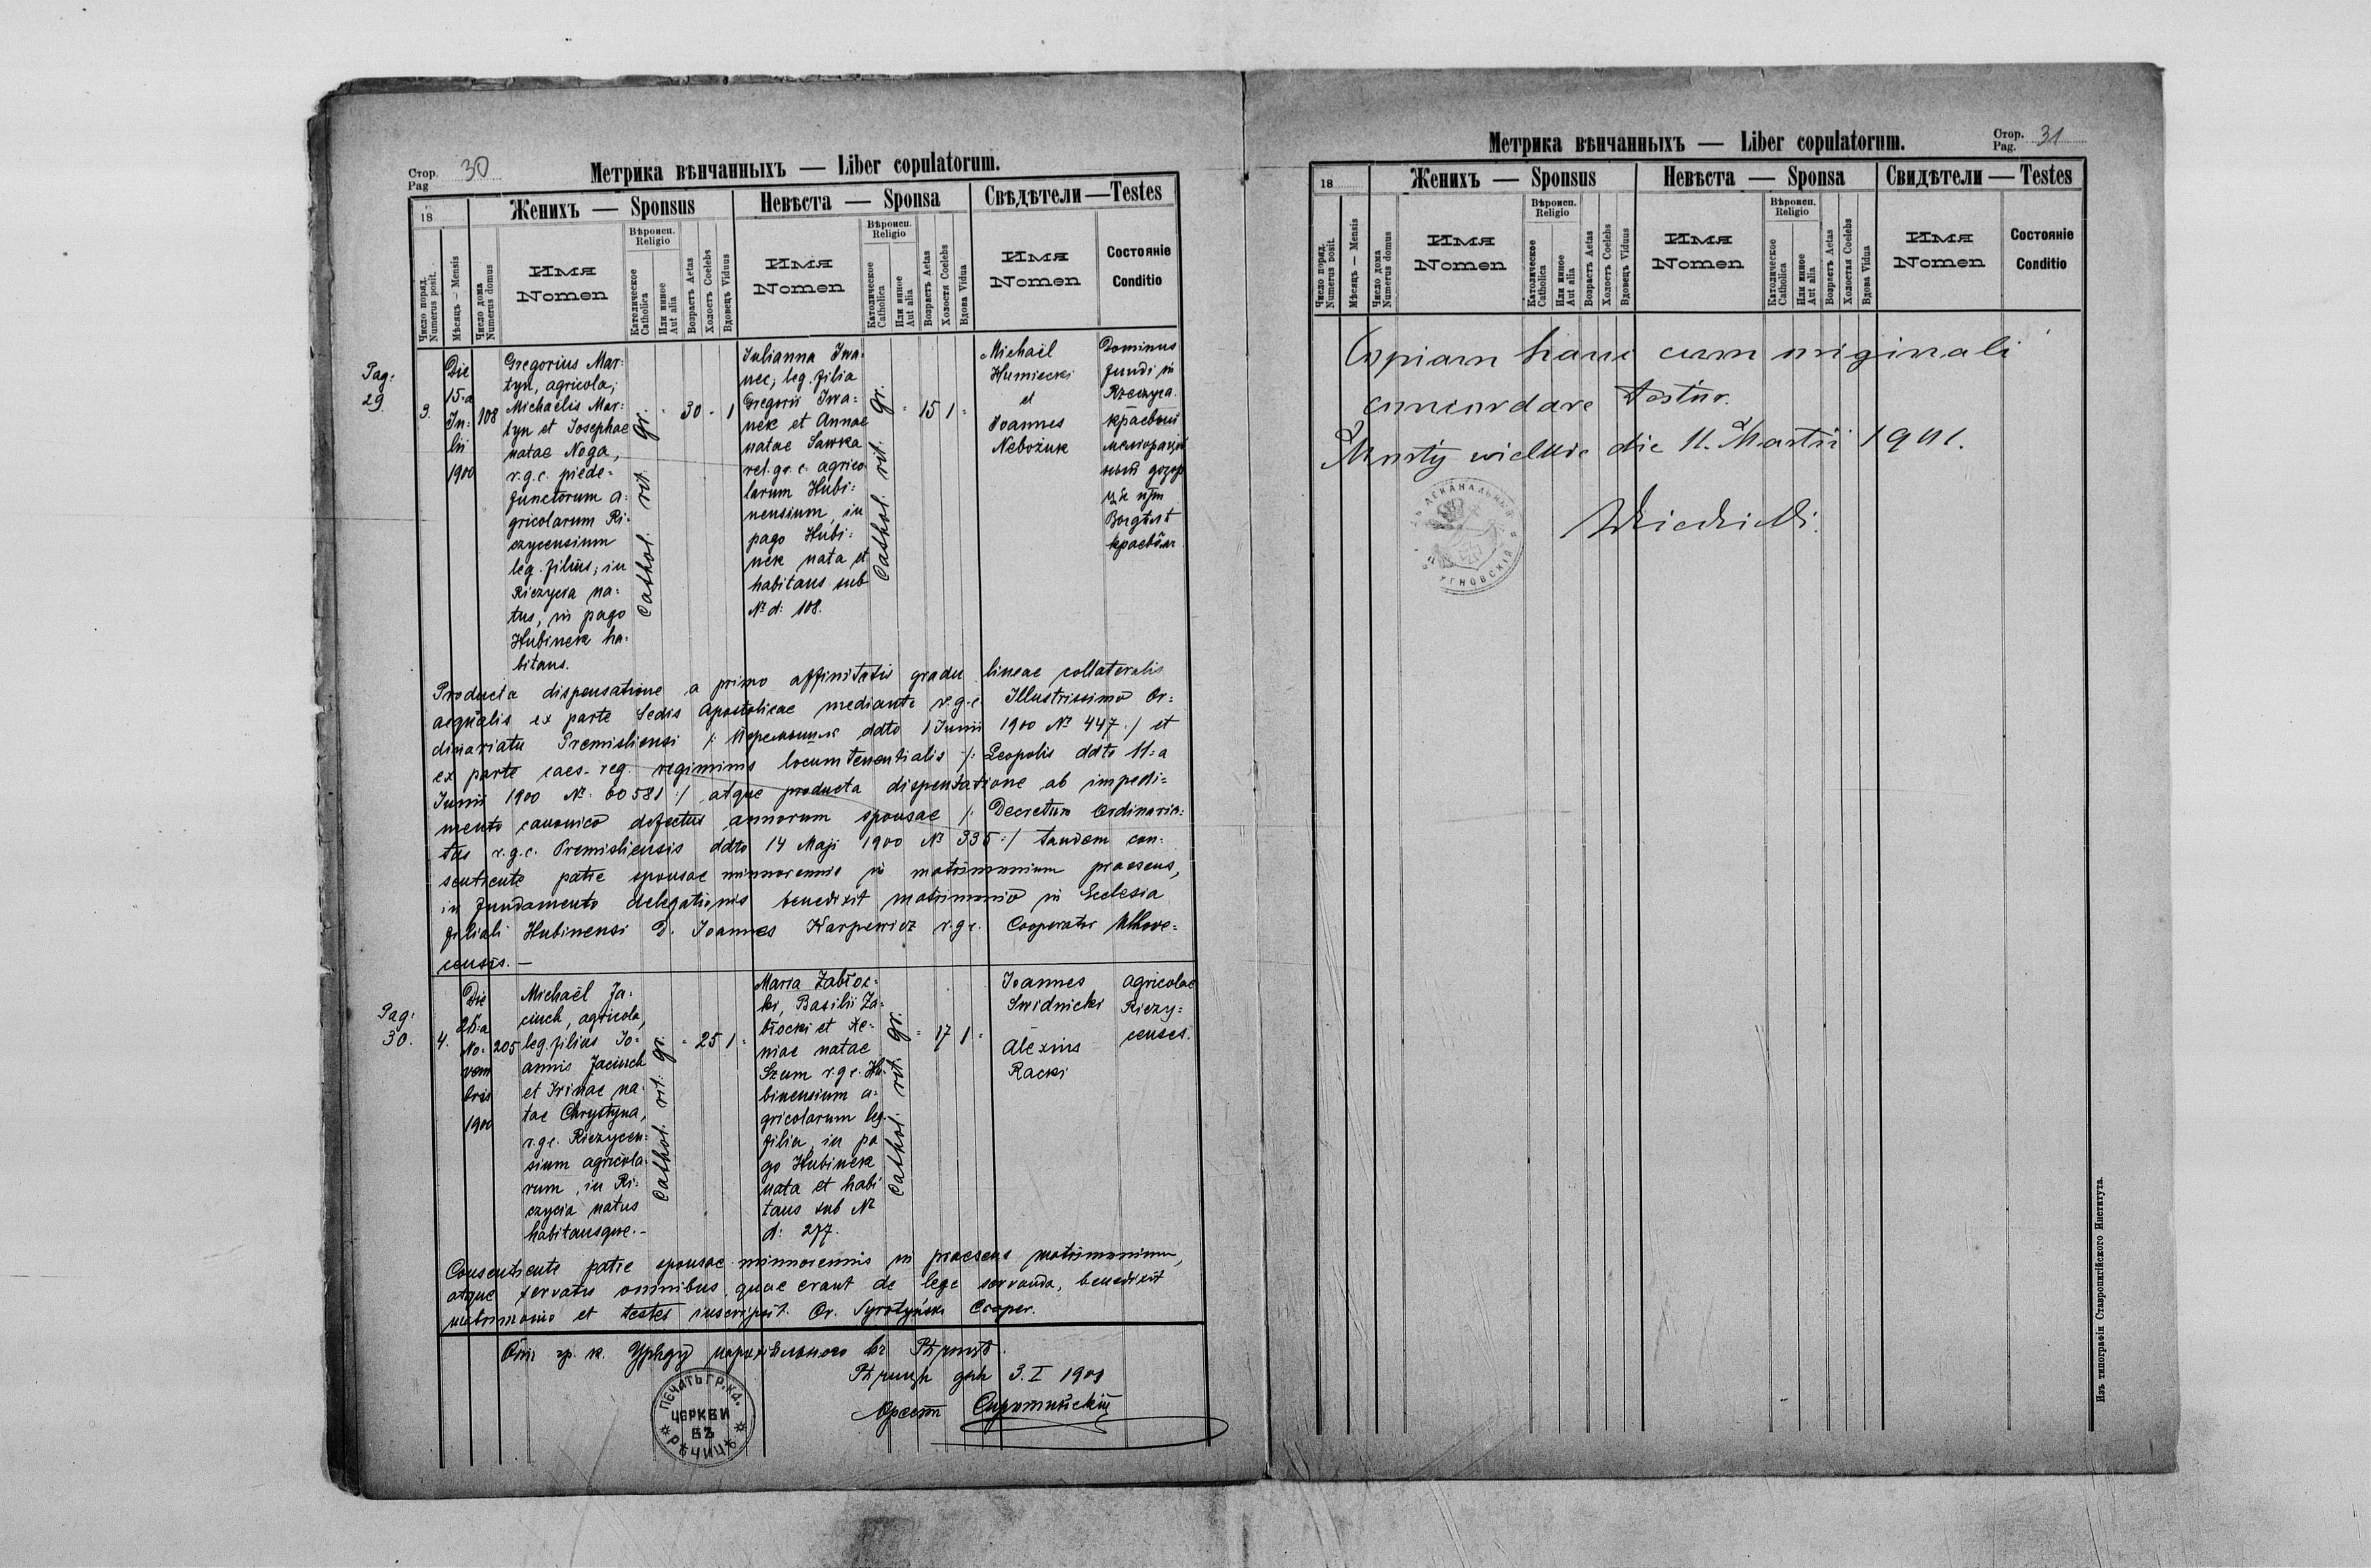 Стор. Pag 30
Метрика вѣнчанныхъ — Liber copulatorum.
18
Женихъ — Sponsus
Невѣста — Sponsa
Свѣдѣтели — Testes
Число поряд. Numerus posit.
Мѣсяцъ — Mensis
Число дома Numerus domus
Имя
Nomen
Вѣроисп. Religio
Католическое Catholica
Или иное Aut alia
Возрастъ Aetas
Холостъ Coelebs
Вдовецъ Viduus
Имя
Nomen
Вѣроисп. Religio
Католическое Catholica
Или иное Aut alia
Возрастъ Aetas
Холостя Coelebs
Вдова Vidua
Имя
Nomen
Состояніе
Conditio
Pag: 29
3.
Die
15-a
Ju-
lii
1900
108
Gregorius Mar-
tyn, agricola,
Michaëlis Mar-
tyn et Josephae
natae Noga,
r.g.c. piede-
functorum a-
gricolarum Ri-
czycensium
leg. filius; in
Riczycia na-
tus, in pago
Hubinek ha-
bitans.
Cathol. rit. gr.
30 - 1
Julianna Iwa-
nec, leg. filia
Gregorii Iwa-
nek et Annae
natae Sawka
rel. gr. c. agrico
larum Hubi-
nensium, in
pago Hubi-
nek nata et
habitans sub
Nr d: 108.
Cathol. rit. gr.
15 1
Michaël
Humiecki
et
Joannes
Nebożuk
Dominus
fundi in
Rzeczyca
краевый
меліорацій
ный дозор
Producta dispensatione a primo affinitatis gradu lineae collateralis
aequalis ex parte Sedis Apostolicae mediante r.g.c. Illustrissimo Or-
dinariatu Premisliensi /: Перемышль ddto 1 Junii 1900 Nr 447 :/ et
ex parte caes. reg. regiminis locumtenentialis /: Leopolis ddto 11-a
Junii 1900 Nr. 60581 :/ atque producta dispensatione ab impedi-
mento canonico defectus annorum sponsae /: Decretum Ordinaria-
tus r.g.c. Premisliensis ddto 14 Maji 1900 Nr 335 :/ tandem con-
sentiente patre sponsae minorennis in matrimonium praesens,
in fundamento delegationis benedixit matrimonio in Ecclesia
filiali Hubinensi D. Joannes Karpewicz r.g.c. Cooperator Uhhove-
censis. —
Pag: 30.
4.
Die
No-
vem
bris
1900
205
Michaël Ja-
ciuch, agricola,
leg. filius Jo-
annis Jaciuch
et Irinae na-
tae Chrystyna,
r.g.c. Riczycen-
sium agricola-
rum, in Ri-
czycia natus
habitansque. -
Cathol. rit. gr.
25 1
Maria Zabłoc-
ki, Basilii Za-
błocki et Xe-
niae natae
Szum r.g.c. Hu-
binensium a-
gricolarum leg.
filia, in pa
go Hubinek
nata et habi
tans sub Nr
d: 277.
Cathol. rit. gr.
17 1
Joannes
Swidnicki
Alexius
Racki
agricolae
Riczy-
censes.
Consentiente patre sponsae minorennis in praesens matrimonium,
atque servatis omnibus, quae erant de lege servanda, benedixit
matrimonio et testes inscripsit. Or. Syrotyński Cooper.
Отъ гр. к. Уряду парохіяльного въ Рѣчицѣ.
Рѣчиця дня 3. I 1901
Орестъ Сиротинскій
ПЕЧАТЬ ГР. КА.
ЦЕРКВИ
ВЪ
РѢЧИЦѢ
Метрика вѣнчанныхъ — Liber copulatorum.
Стор. Pag. 31
18
Женихъ — Sponsus
Невѣста — Sponsa
Свидѣтели — Testes
Число поряд. Numerus posit.
Мѣсяцъ — Mensis
Число дома Numerus domus
Имя
Nomen
Вѣроисп. Religio
Католическое Catholica
Или иное Aut alia
Возрастъ Aetas
Холостъ Coelebs
Вдовецъ Viduus
Имя
Nomen
Вѣроисп. Religio
Католическое Catholica
Или иное Aut alia
Возрастъ Aetas
Холостая Coelebs
Вдова Vidua
Имя
Nomen
Состояніе
Conditio
Copiam hanc cum originali
concordare testor.
Mosty wielkie die 11. Martii 1901.
Изъ типографіи Ставропигійского Института.